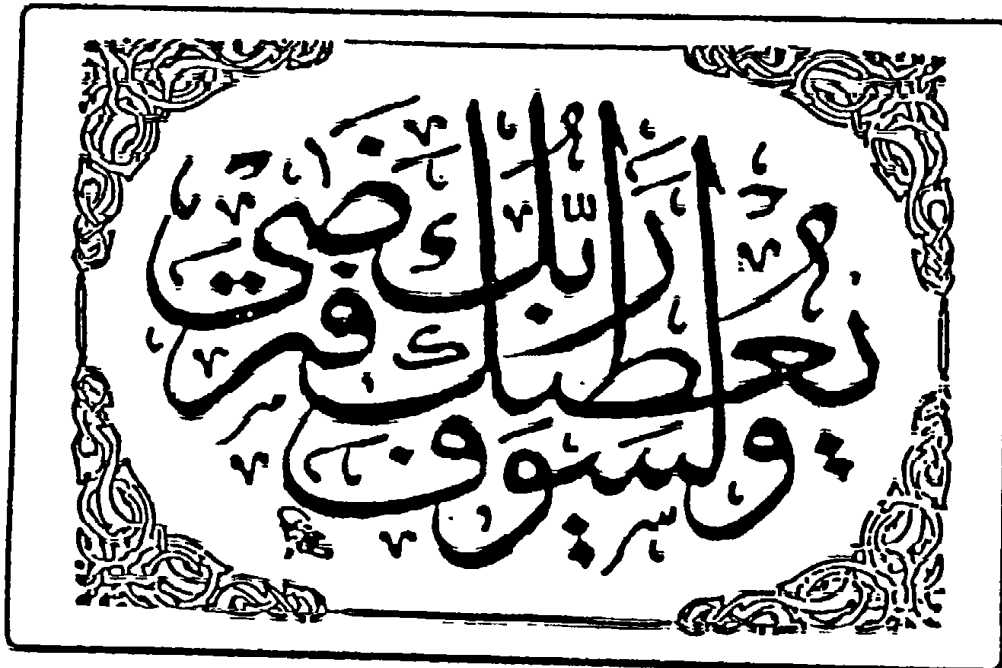 وَلَسَوْفَ
يُعْطِيكَ
رَبُّكَ فَتَرْضَىٰ